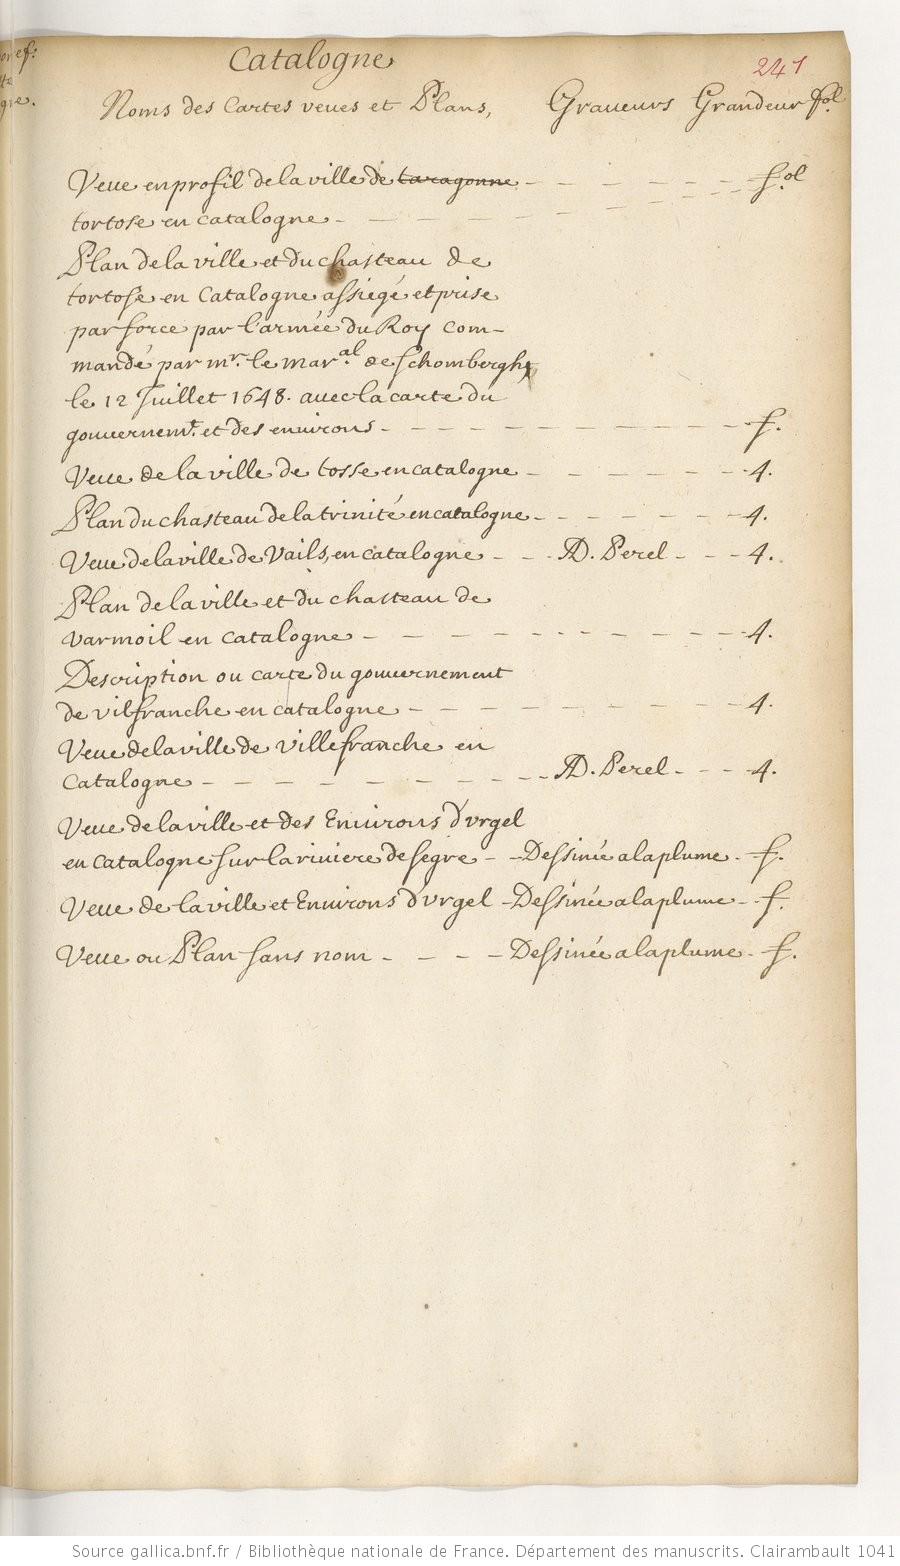 Catalogne
241
Noms des Cartes veues et Plans, Graueurs Grandeur fol.
Veue en profil de la ville de taragonne - - - - - - fol
tortose en catalogne - - - - - -
Plan de la ville et du chasteau de
tortose en Catalogne assiegé et prise
par force par l'armée du Roy com-
mandé par mr. le maral. de schombergh
le 12 Juillet 1648. auec la carte du
gouuernemt. et des enuirons - - - - - - f.
Veue de la ville de tosse en catalogne - - - - - - 4.
Plan du chasteau de la trinité en catalogne - - - - - - 4.
Veue de la ville de Vails, en catalogne - - - AD. Perel - - - 4.
Plan de la ville et du chasteau de
varmoil en catalogne - - - - - - 4.
Description ou carte du gouuernement
de vilfranche en catalogne - - - - - - 4.
Veue de la ville de villefranche en
Catalogne - - - - - - AD. Perel - - - 4.
Veue de la ville et des Enuirons d'vrgel
en catalogne sur la riuiere de segre - - Dessinée a la plume - f.
Veue de la ville et Enuirons d'vrgel - Dessinée a la plume - f.
Veue ou Plan sans nom - - - - Dessinée a la plume - f.
Source gallica.bnf.fr / Bibliothèque nationale de France. Département des manuscrits. Clairambault 1041